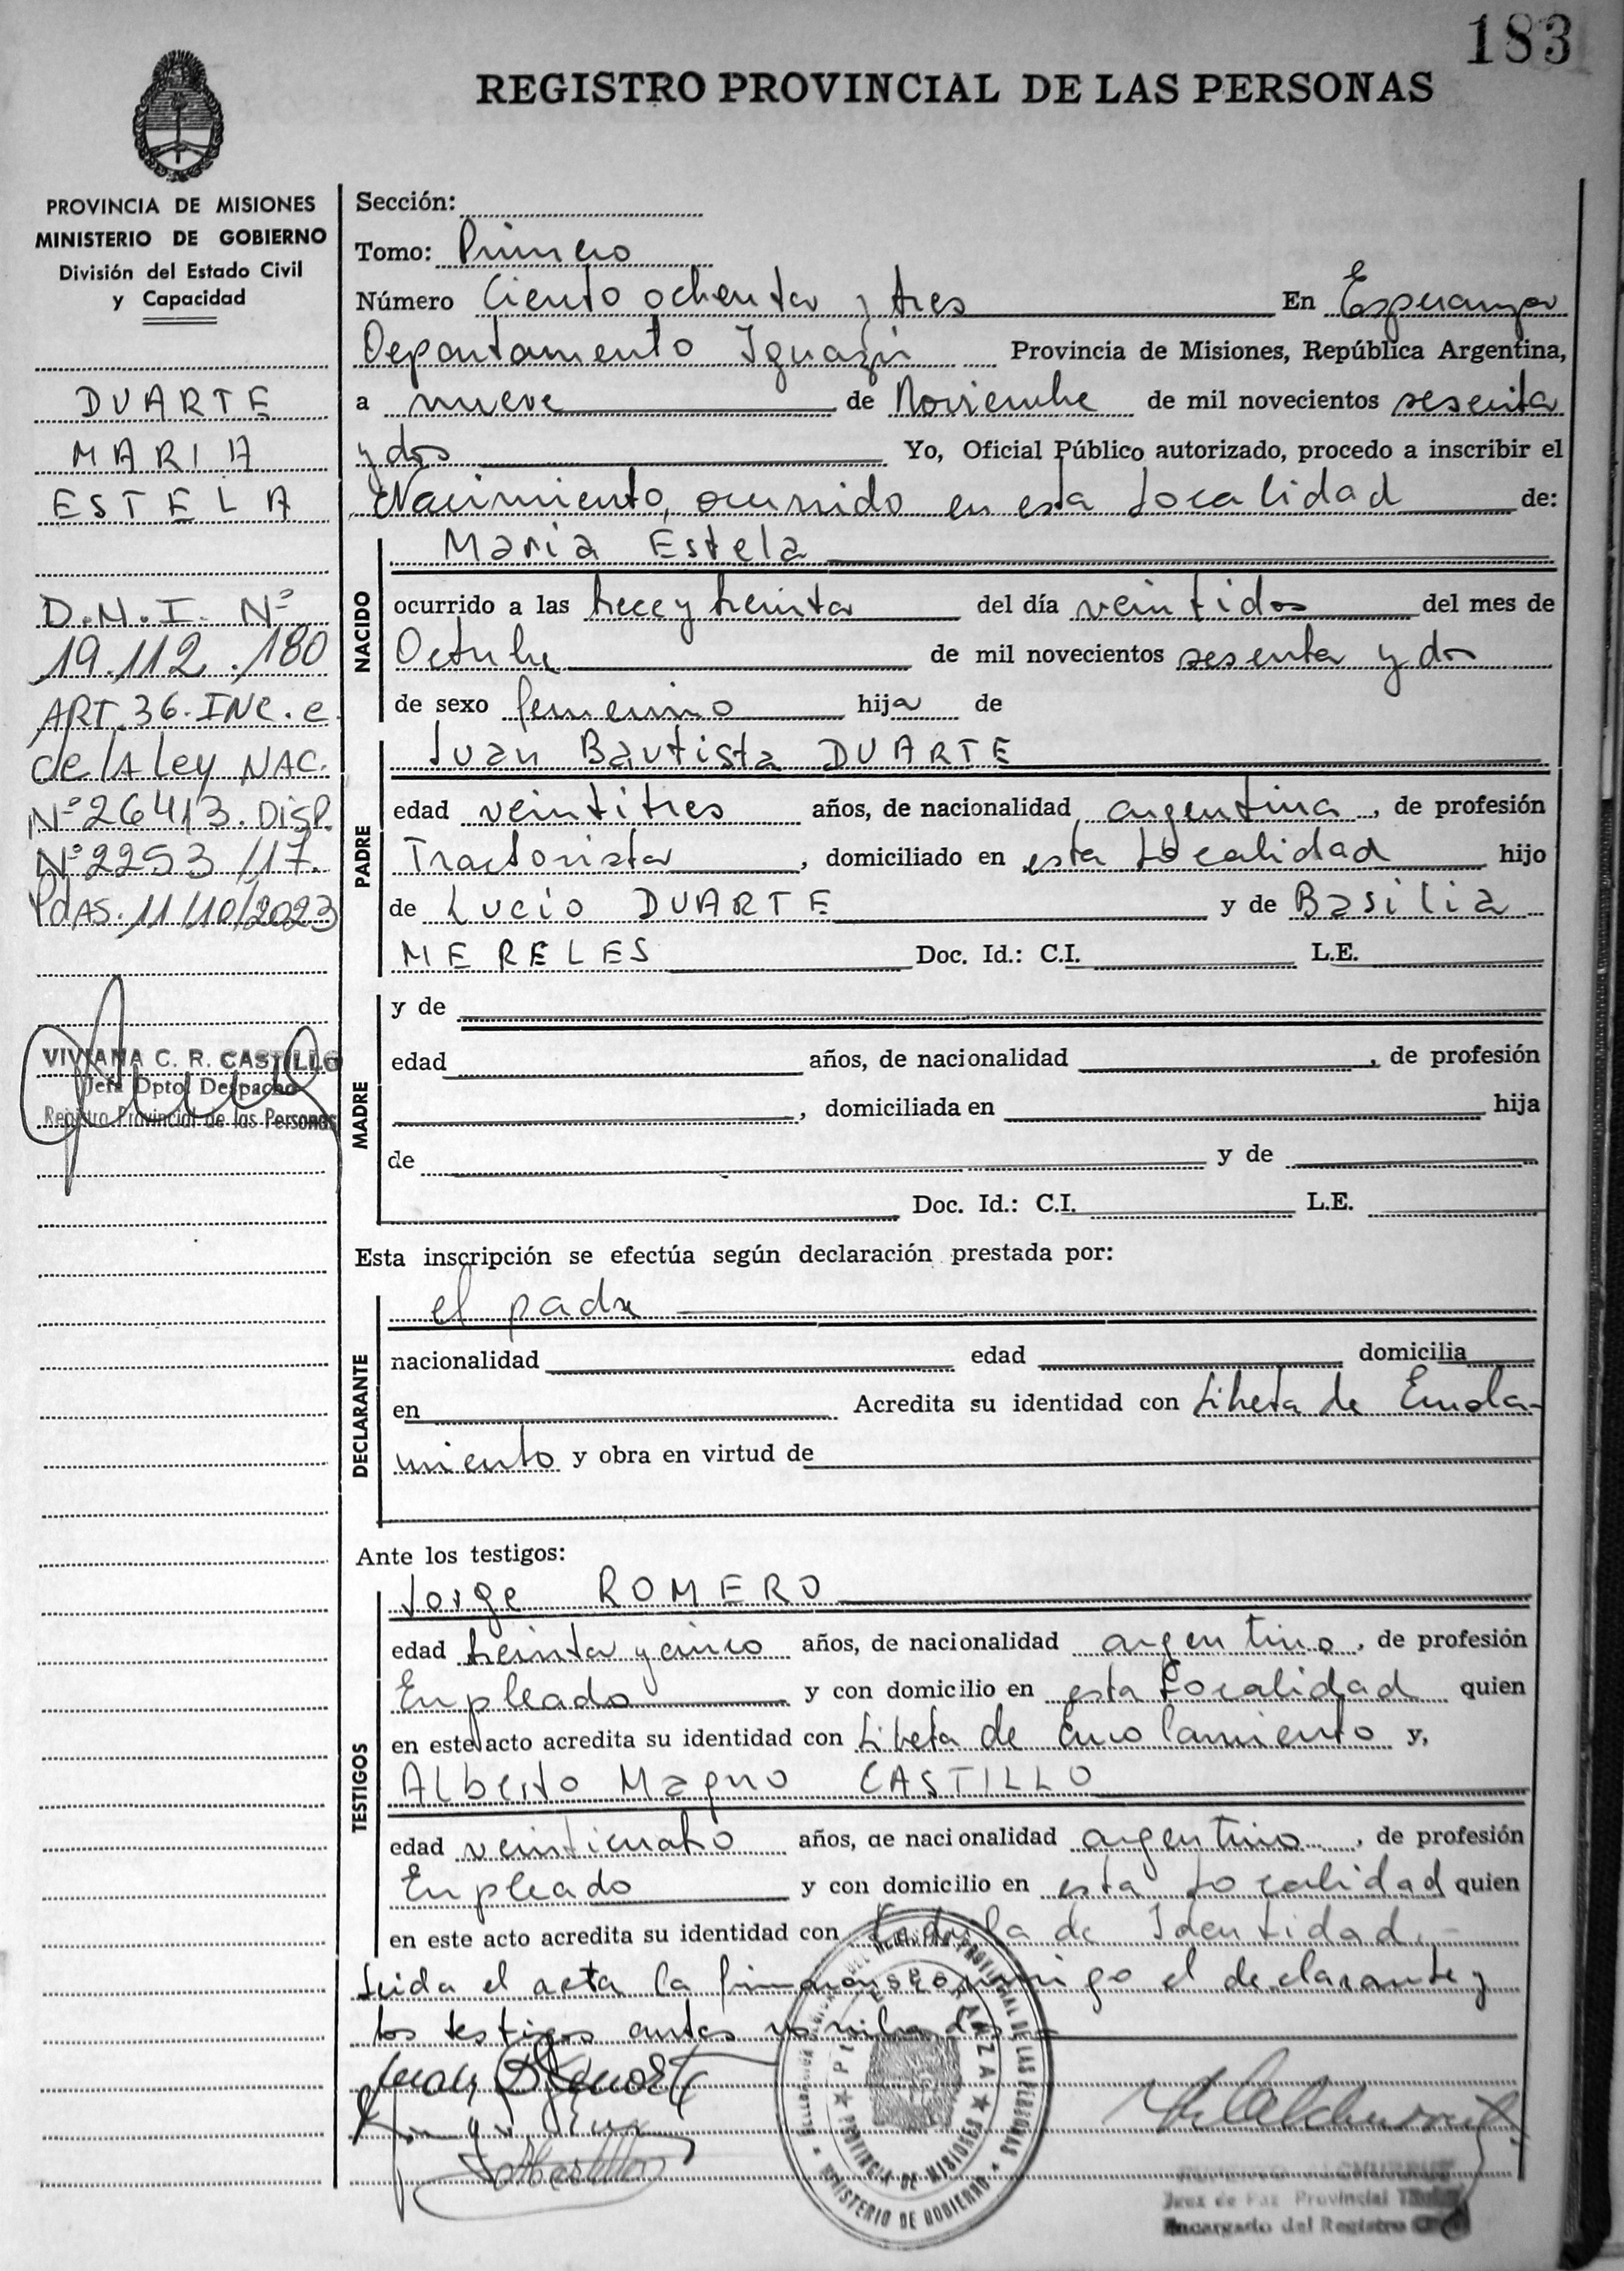 183
REGISTRO PROVINCIAL DE LAS PERSONAS
PROVINCIA DE MISIONES
MINISTERIO DE GOBIERNO
División del Estado Civil
y Capacidad
DUARTE
MARIA
ESTELA
D.N.I. Nº
19.112.180
ART.36.INC.e
de lA Ley NAC.
Nº26413.DISP.
Nº2253/17.
PdAS.11/10/2023
VIVIANA C. R. CASTILLO
Jefa Dpto. Despacho
Registro Provincial de las Personas
Sección:
Tomo: Primero
Número Ciento ochenta y tres En Esperanza
Departamento Iguazú Provincia de Misiones, República Argentina,
a nueve de Noviembre de mil novecientos sesenta
y dos Yo, Oficial Público autorizado, procedo a inscribir el
Nacimiento, ocurrido en esta Localidad de:
NACIDO
Maria Estela
ocurrido a las trece y treinta del día veintidos del mes de
Octubre de mil novecientos sesenta y dos
de sexo femenino hija de
PADRE
Juan Bautista DUARTE
edad veintitres años, de nacionalidad argentina, de profesión
Tractorista, domiciliado en esta Localidad hijo
de Lucio DUARTE y de Basilia
MERELES Doc. Id.: C.I. L.E.
MADRE
y de
edad años, de nacionalidad , de profesión
, domiciliada en hija
de y de
Doc. Id.: C.I. L.E.
Esta inscripción se efectúa según declaración prestada por:
DECLARANTE
el padre
nacionalidad edad domicilia
en Acredita su identidad con Libreta de Enrola-
miento y obra en virtud de
Ante los testigos:
TESTIGOS
Jorge ROMERO
edad treinta y cinco años, de nacionalidad argentino, de profesión
Empleado y con domicilio en esta Localidad quien
en este acto acredita su identidad con Libreta de Enrolamiento y,
Alberto Magno CASTILLO
edad veinticuatro años, de nacionalidad argentino, de profesión
Empleado y con domicilio en esta Localidad quien
en este acto acredita su identidad con Cedula de Identidad.-
Leida el acta la firman conmigo el declarante y
los testigos antes
ESPERANZA
PROVINCIA DE MISIONES
MINISTERIO DE GOBIERNO
PROVINCIAL DE LAS PERSONAS
Juez de Paz Provincial
Encargado del Registro